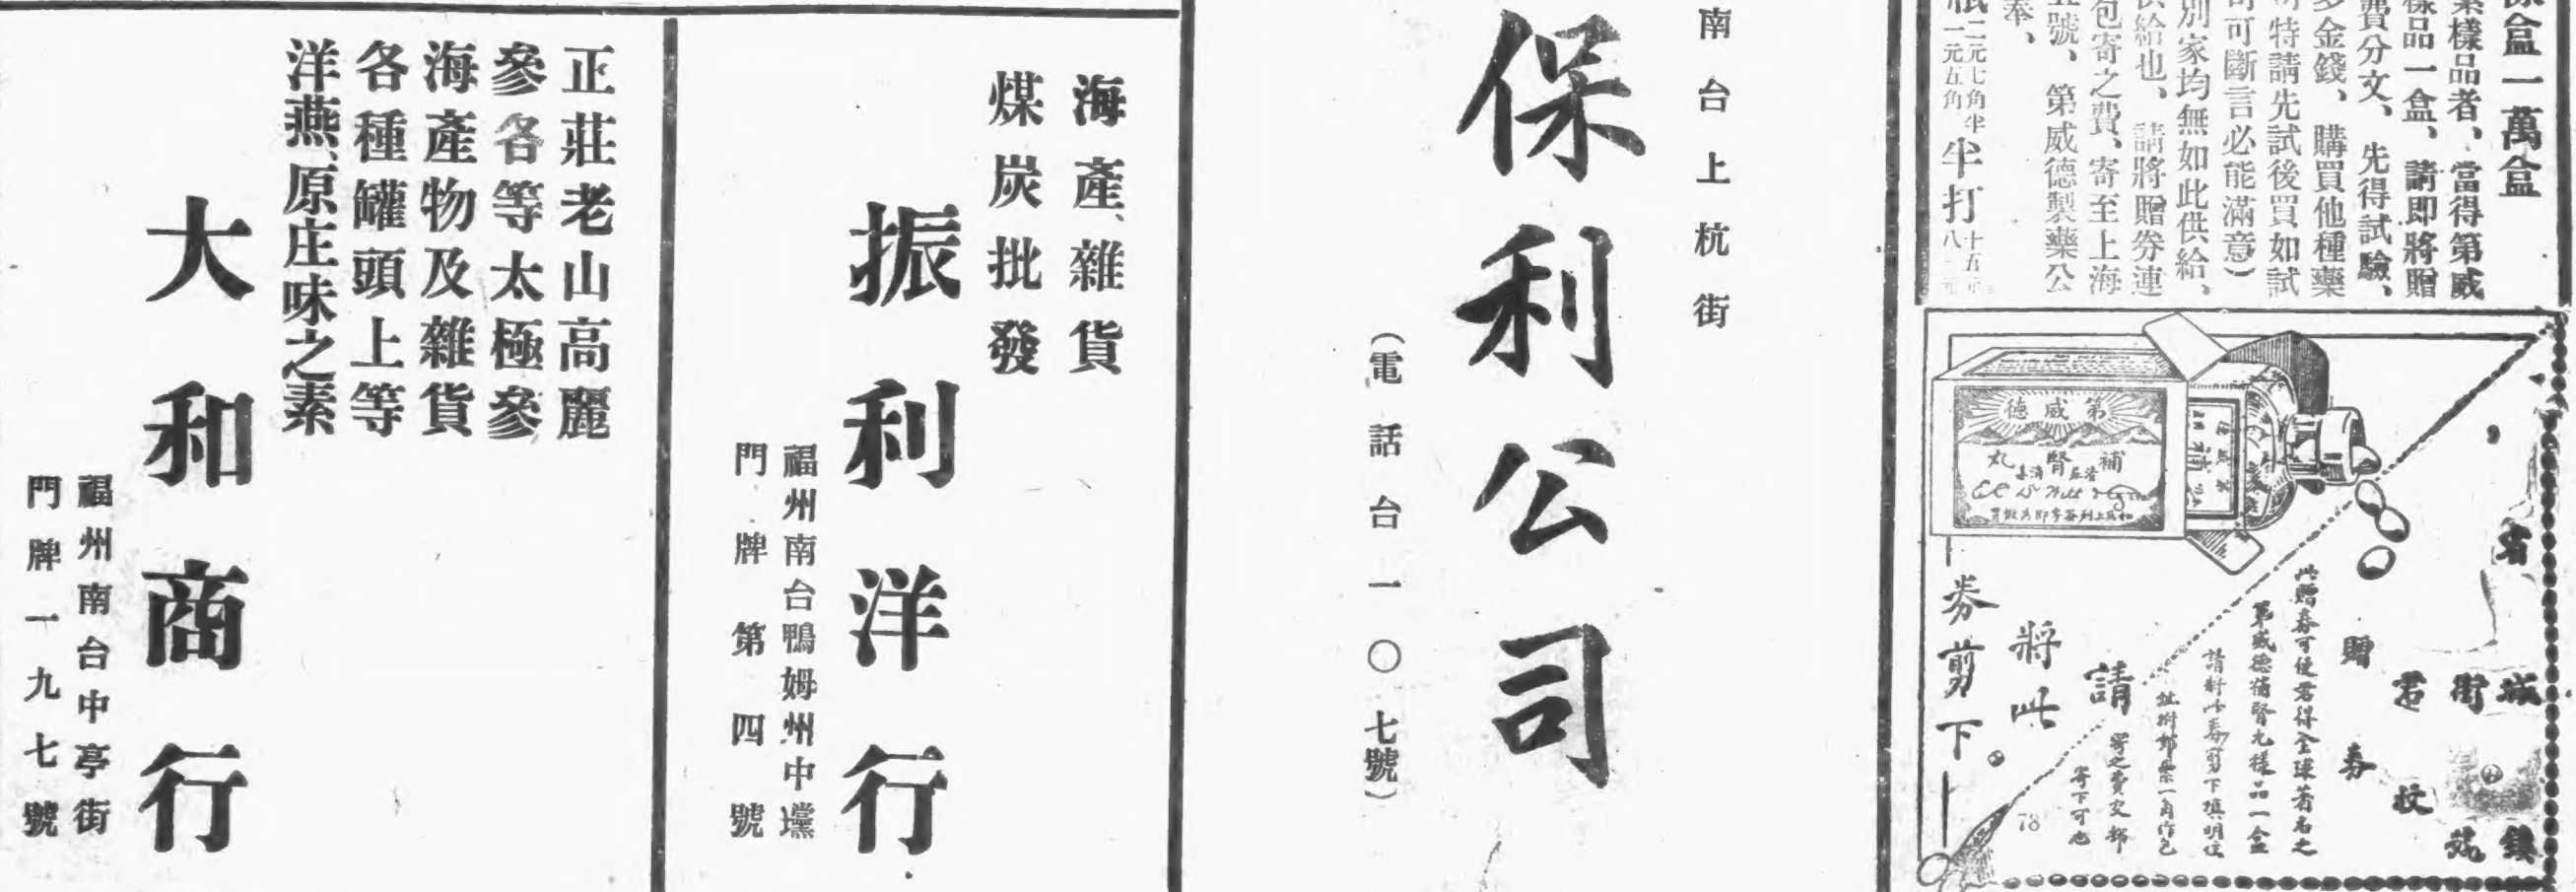 盒一萬盒
樣品者、當得第威
樣品一盒、請即將贈
費分文、先得試驗、
多金錢、購買他種藥
特請先試後買如試
可斷言必能滿意)
別家均無如此供給、
供給也、請將贈券連
包寄之費、寄至上海
號、第威德製藥公
奉、
二元七角半
一元五角
半打
第威德
補腎丸
省
城
鎮
街
君
贈券
此贈券可使君得全球著名之
第威德補腎丸樣品一盒
請將此券剪下填明住
址附郵票一角作包
寄之費交郵
寄下可也
請
將此
券剪下
78
南台上杭街
保利公司
(電話台一〇七號)
海產、雜貨
煤炭批發
振利洋行
福州南台鴨姆州中壋
門牌第四號
正莊老山高麗
參各等太極參
海產物及雜貨
各種罐頭上等
洋燕、原庄味之素
大和商行
福州南台中亭街
門牌一九七號